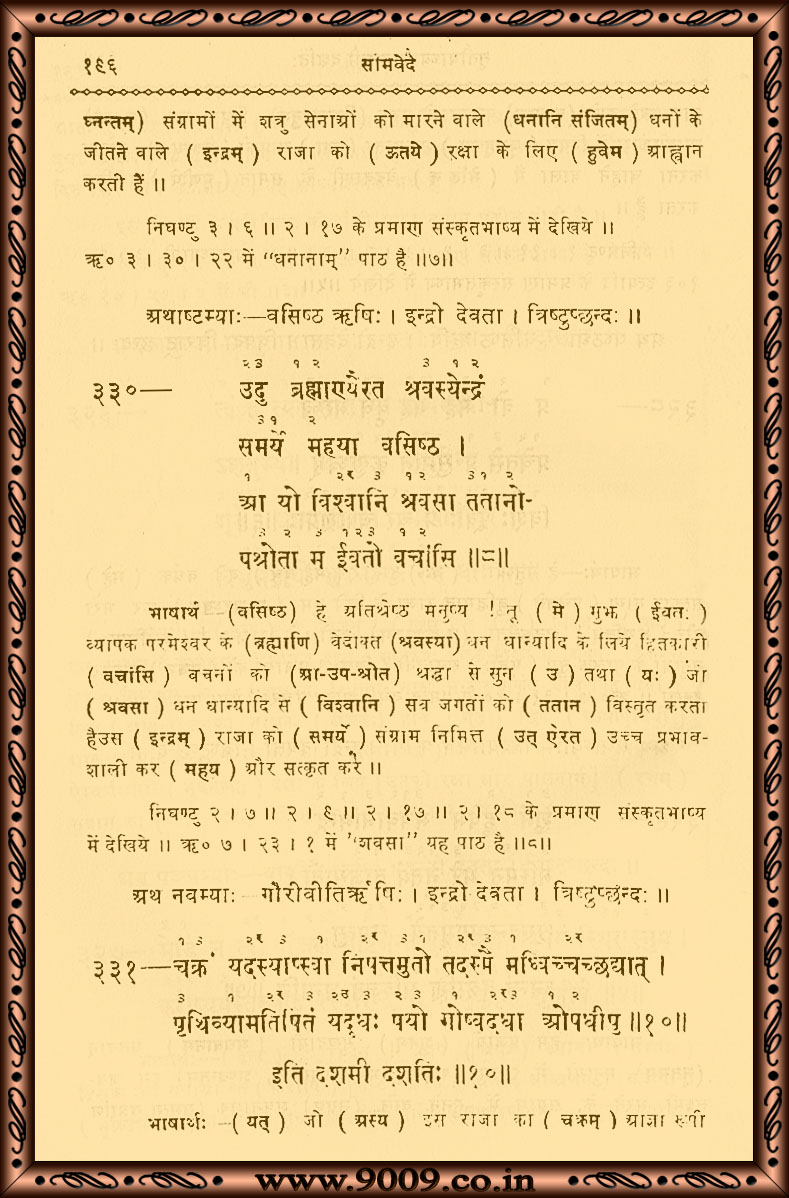 १९६ सामवेदे
घ्नन्तम्) संग्रामों में शत्रु सेनाओं को मारने वाले (धनानि संजितम्) धनों के
जीतने वाले ( इन्द्रम् ) राजा को ( ऊतये ) रक्षा के लिए ( हुवेम ) आह्वान
करती हैं ॥
निघण्टु ३ । ६ ॥ २ । १७ के प्रमाण संस्कृतभाष्य में देखिये ॥
ऋ० ३ । ३० । २२ में “धनानाम्” पाठ है ॥७॥
अथाष्टम्याः—वसिष्ठ ऋषिः । इन्द्रो देवता । त्रिष्टुप्छन्दः ॥
२३ १ २ ३ १ २
३३०— उदु ब्रह्माण्यैरत श्रवस्येन्द्रं
३१ २
समर्ये महया वसिष्ठ ।
१ २र ३ १२ ३१ २
आ यो विश्वानि श्रवसा ततानो-
३ २ ३ १२३ १ २
पश्रोता म ईवतो वचांसि ॥८॥
भाषार्थ —(वसिष्ठ) हे अतिश्रेष्ठ मनुष्य ! तू ( मे ) मुझ ( ईवतः )
व्यापक परमेश्वर के (ब्रह्माणि) वेदोक्त (श्रवस्या) धन धान्यादि के लिये हितकारी
( वचांसि ) वचनों को (आ-उप-श्रोत) श्रद्धा से सुन ( उ ) तथा ( यः ) जो
( श्रवसा ) धन धान्यादि से ( विश्वानि ) सब जगतों को ( ततान ) विस्तृत करता
हैउस ( इन्द्रम् ) राजा को ( समर्ये ) संग्राम निमित्त ( उत् ऐरत ) उच्च प्रभाव-
शाली कर ( महय ) और सत्कृत करे ॥
निघण्टु २ । ७ ॥ २ । ९ ॥ २ । १७ ॥ २ । १८ के प्रमाण संस्कृतभाष्य
में देखिये ॥ ऋ० ७ । २३ । १ में ’’शवसा” यह पाठ है ॥८॥
अथ नवम्याः— गौरीवीतिर्ऋषिः । इन्द्रो देवता । त्रिष्टुप्छन्दः ॥
१ ३ २र ३ १ २र ३ १ २र ३ १ २र
३३१—चक्रं यदस्याप्स्वा निषत्तमुतो तदस्मै मध्विच्चच्छद्यात् ।
३ १ २र ३ २उ ३ २ ३ १ २र३ १ २
पृथिव्यामतिषितं यदूधः पयो गोष्वदधा ओषधीषु ॥१०॥
इति दशमी दशतिः ॥१०॥
भाषार्थः —( यत् ) जो ( अस्य ) इस राजा का ( चक्रम् ) आज्ञा रूपी
www.9009.co.in